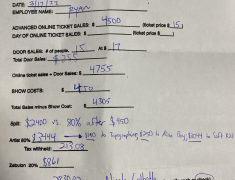 DATE: 2/17/23
EMPLOYEE NAME: Ryan
ADVANCED ONLINE TICKET SALES: $ 4500 (ticket price $ 15)
DAY OF ONLINE TICKET SALES: $ (ticket price $ )
DOOR SALES: # of people 15 At $ 17
Total Door Sales: $255
Online ticket sales + Door Sales: $ 4755
SHOW COSTS: $ 450
Total Sales minus Show Cost: $ 4305
Split: $2400 vs. 80% after $450
Artist 80% $3444 → to $250 to to
Tax withheld: 213.08
Zebulon 20% $861